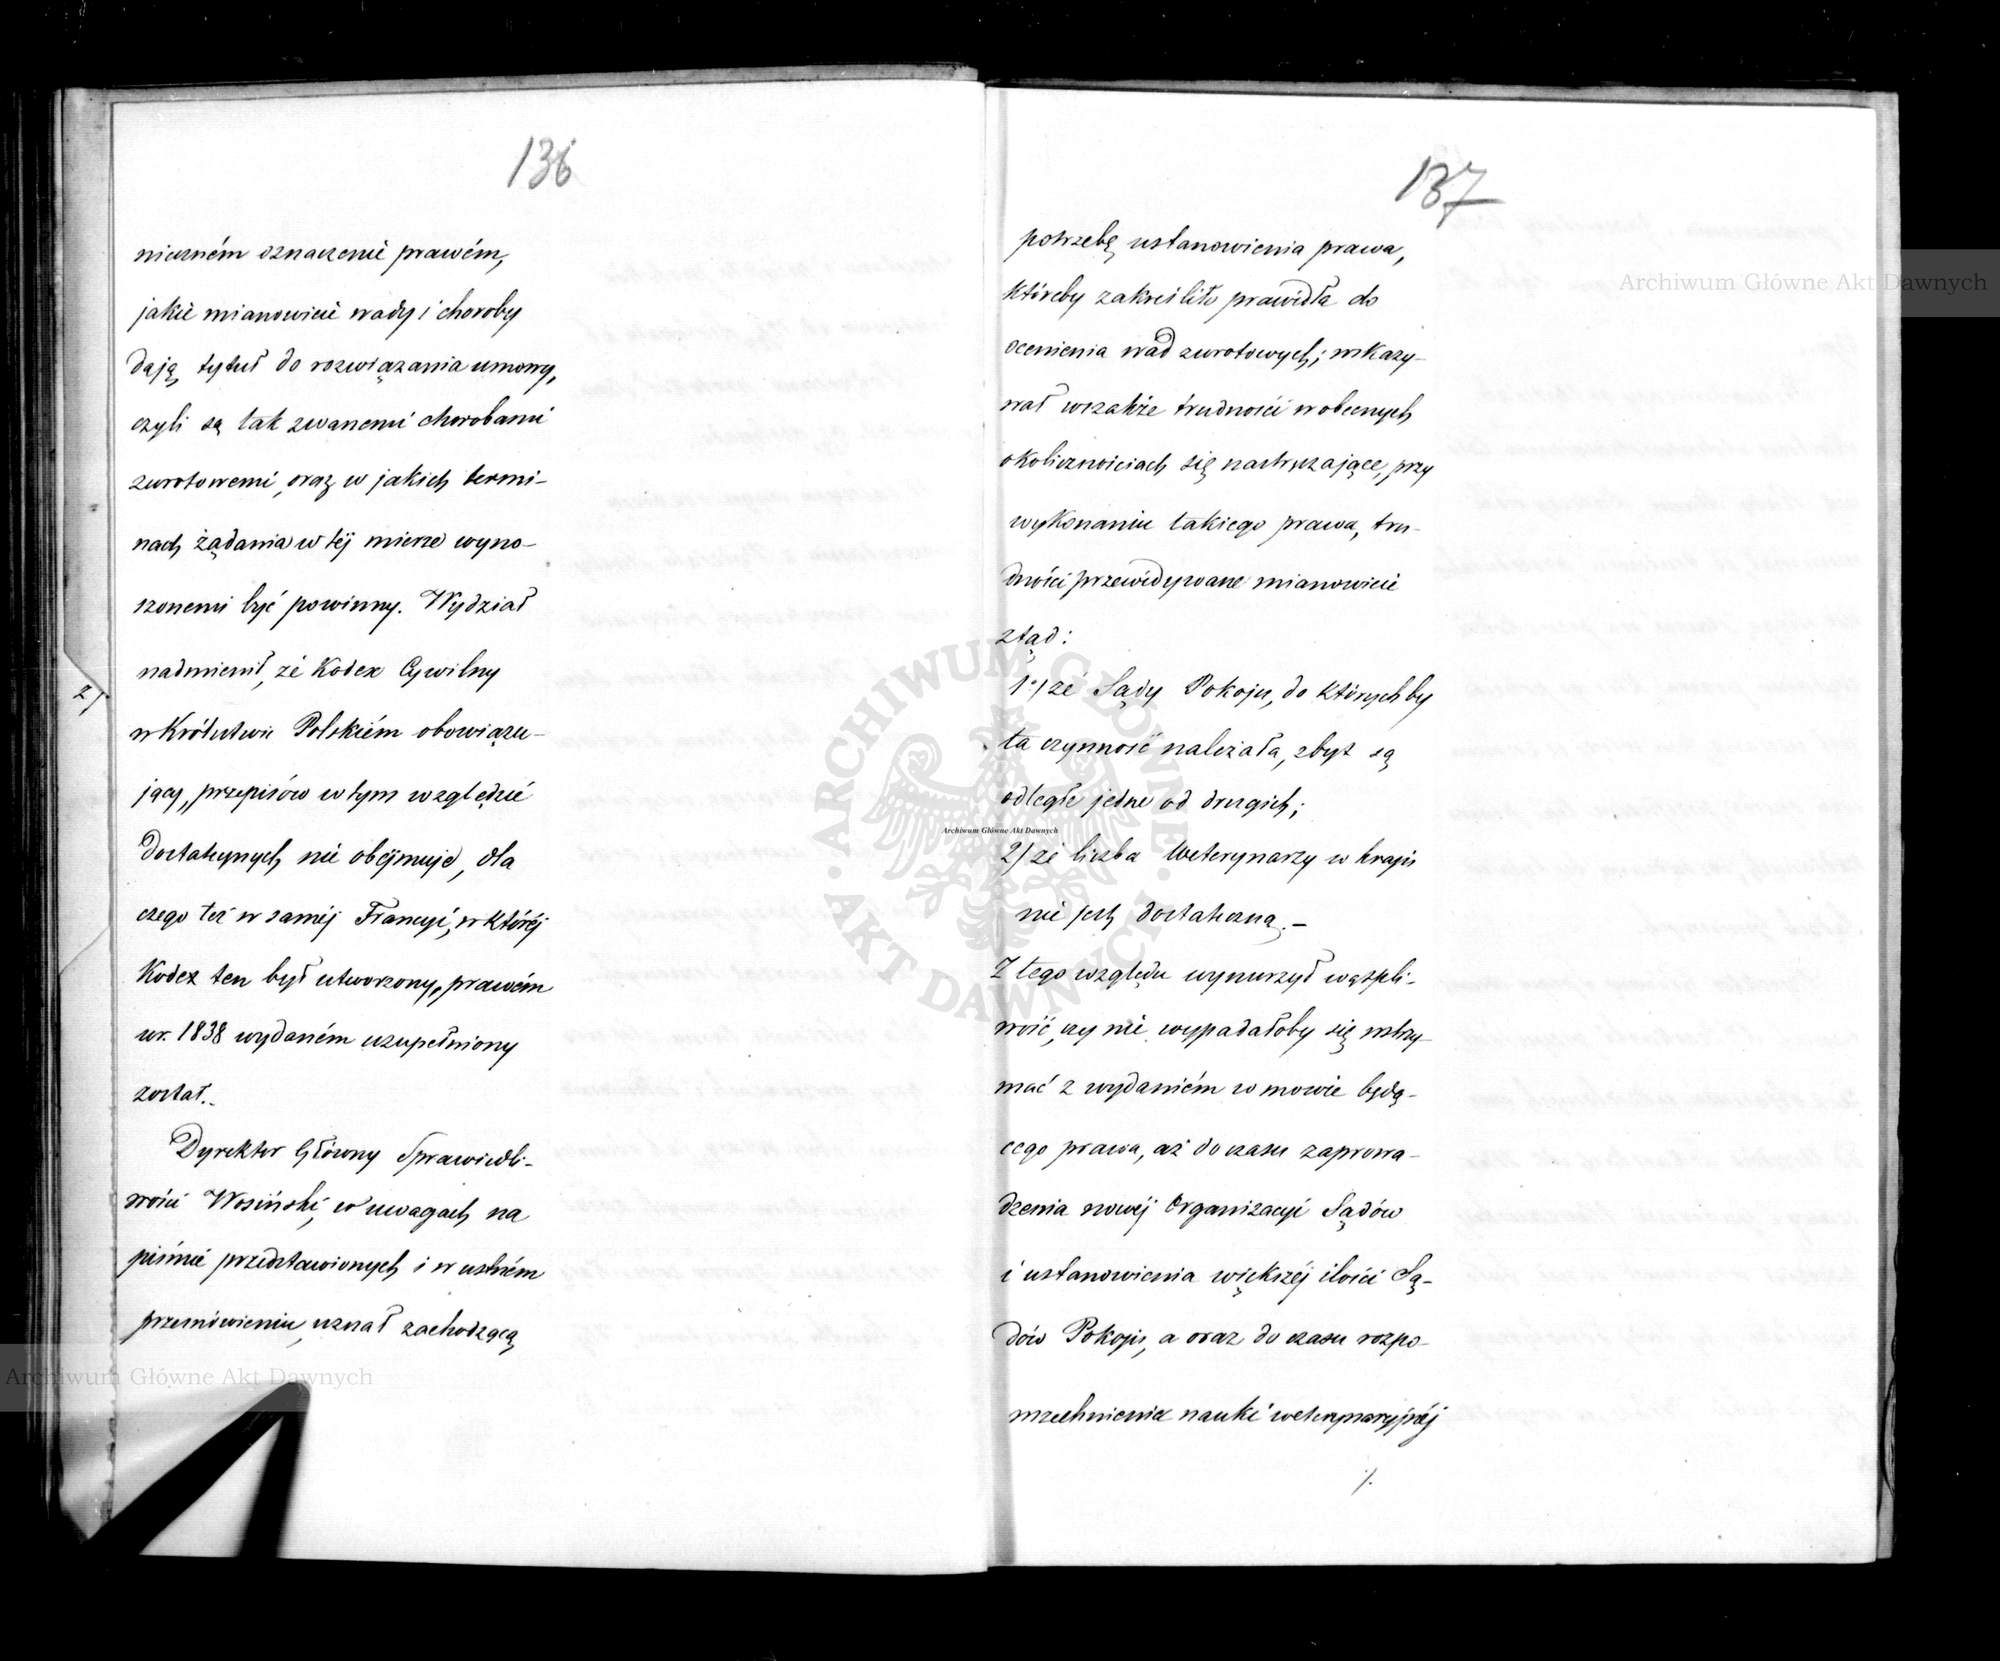 136
niezném oznaczenie prawém,
jakie mianowicie wady i choroby
dają tytuł do rozwiązania umowy,
czyli są tak zwanemi chorobami
zwrotowemi, oraz w jakich termi-
nach żądania w téj mierze wyno-
szonemi być powinny. Wydział
nadmienił, że Kodex Cywilny
w Królestwie Polskiém obowiązu-
jący, przepisów w tym względzie
dostatecznych nie obejmuje, dla
czego też w saméj Francyi, w któréj
Kodex ten był utworzony, prawém
w r. 1838 wydaném uzupełniony
został.
Dyrektor Główny Sprawiedli-
wości Wosiński, w uwagach na
piśmie przedstawionych i w ustném
przemówieniu, uznał zachodzącą
137
potrzebę ustanowienia prawa,
któreby zakreśliło prawidła do
ocenienia wad zwrotowych; wskazy-
wał wszakże trudności w obecnych
okolicznościach się nastręczające, przy
wykonaniu takiego prawa, tru-
dności przewidywane mianowicie
ztąd:
1o/ że Sądy Pokoju, do którychby
ta czynność należała, zbyt są
odległe jedne od drugich;
2/ że liczba Weterynarzy w kraju
nie jest dostateczną.–
Z tego względu wynurzył wątpli-
wość, czy nie wypadałoby się wstrzy-
mać z wydaniém w mowie będą-
cego prawa, aż do czasu zaprowa-
dzenia nowéj Organizacyi Sądów
i ustanowienia większéj ilości Są-
dów Pokoju, a oraz do czasu rozpo-
wszechnienia nauki weterynaryjnéj
./.
Archiwum Główne Akt Dawnych
Archiwum Główne Akt Dawnych
Archiwum Główne Akt Dawnych
ARCHIWUM GŁÓWNE AKT DAWNYCH